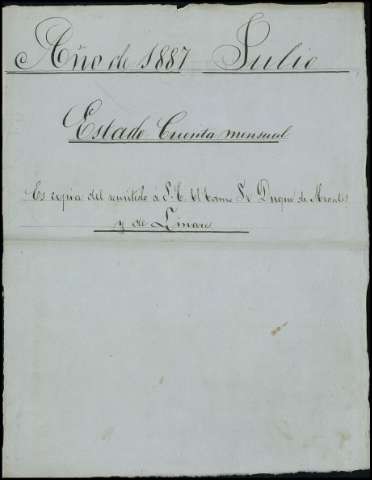 Año de 1887 Julio
Estado Cuenta mensual
Es copia del remitido á S. E. el Sr Duque de
y de Linares